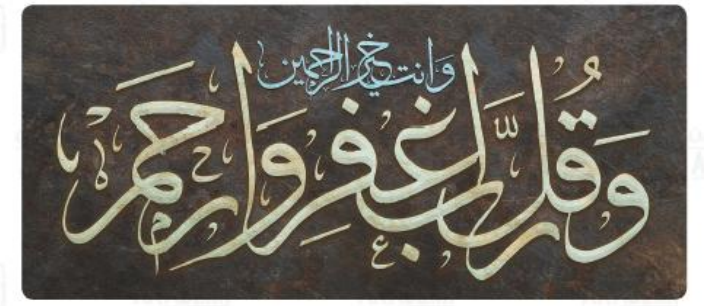 وقل رب اغفر وارحم
وانت خير الراحمين